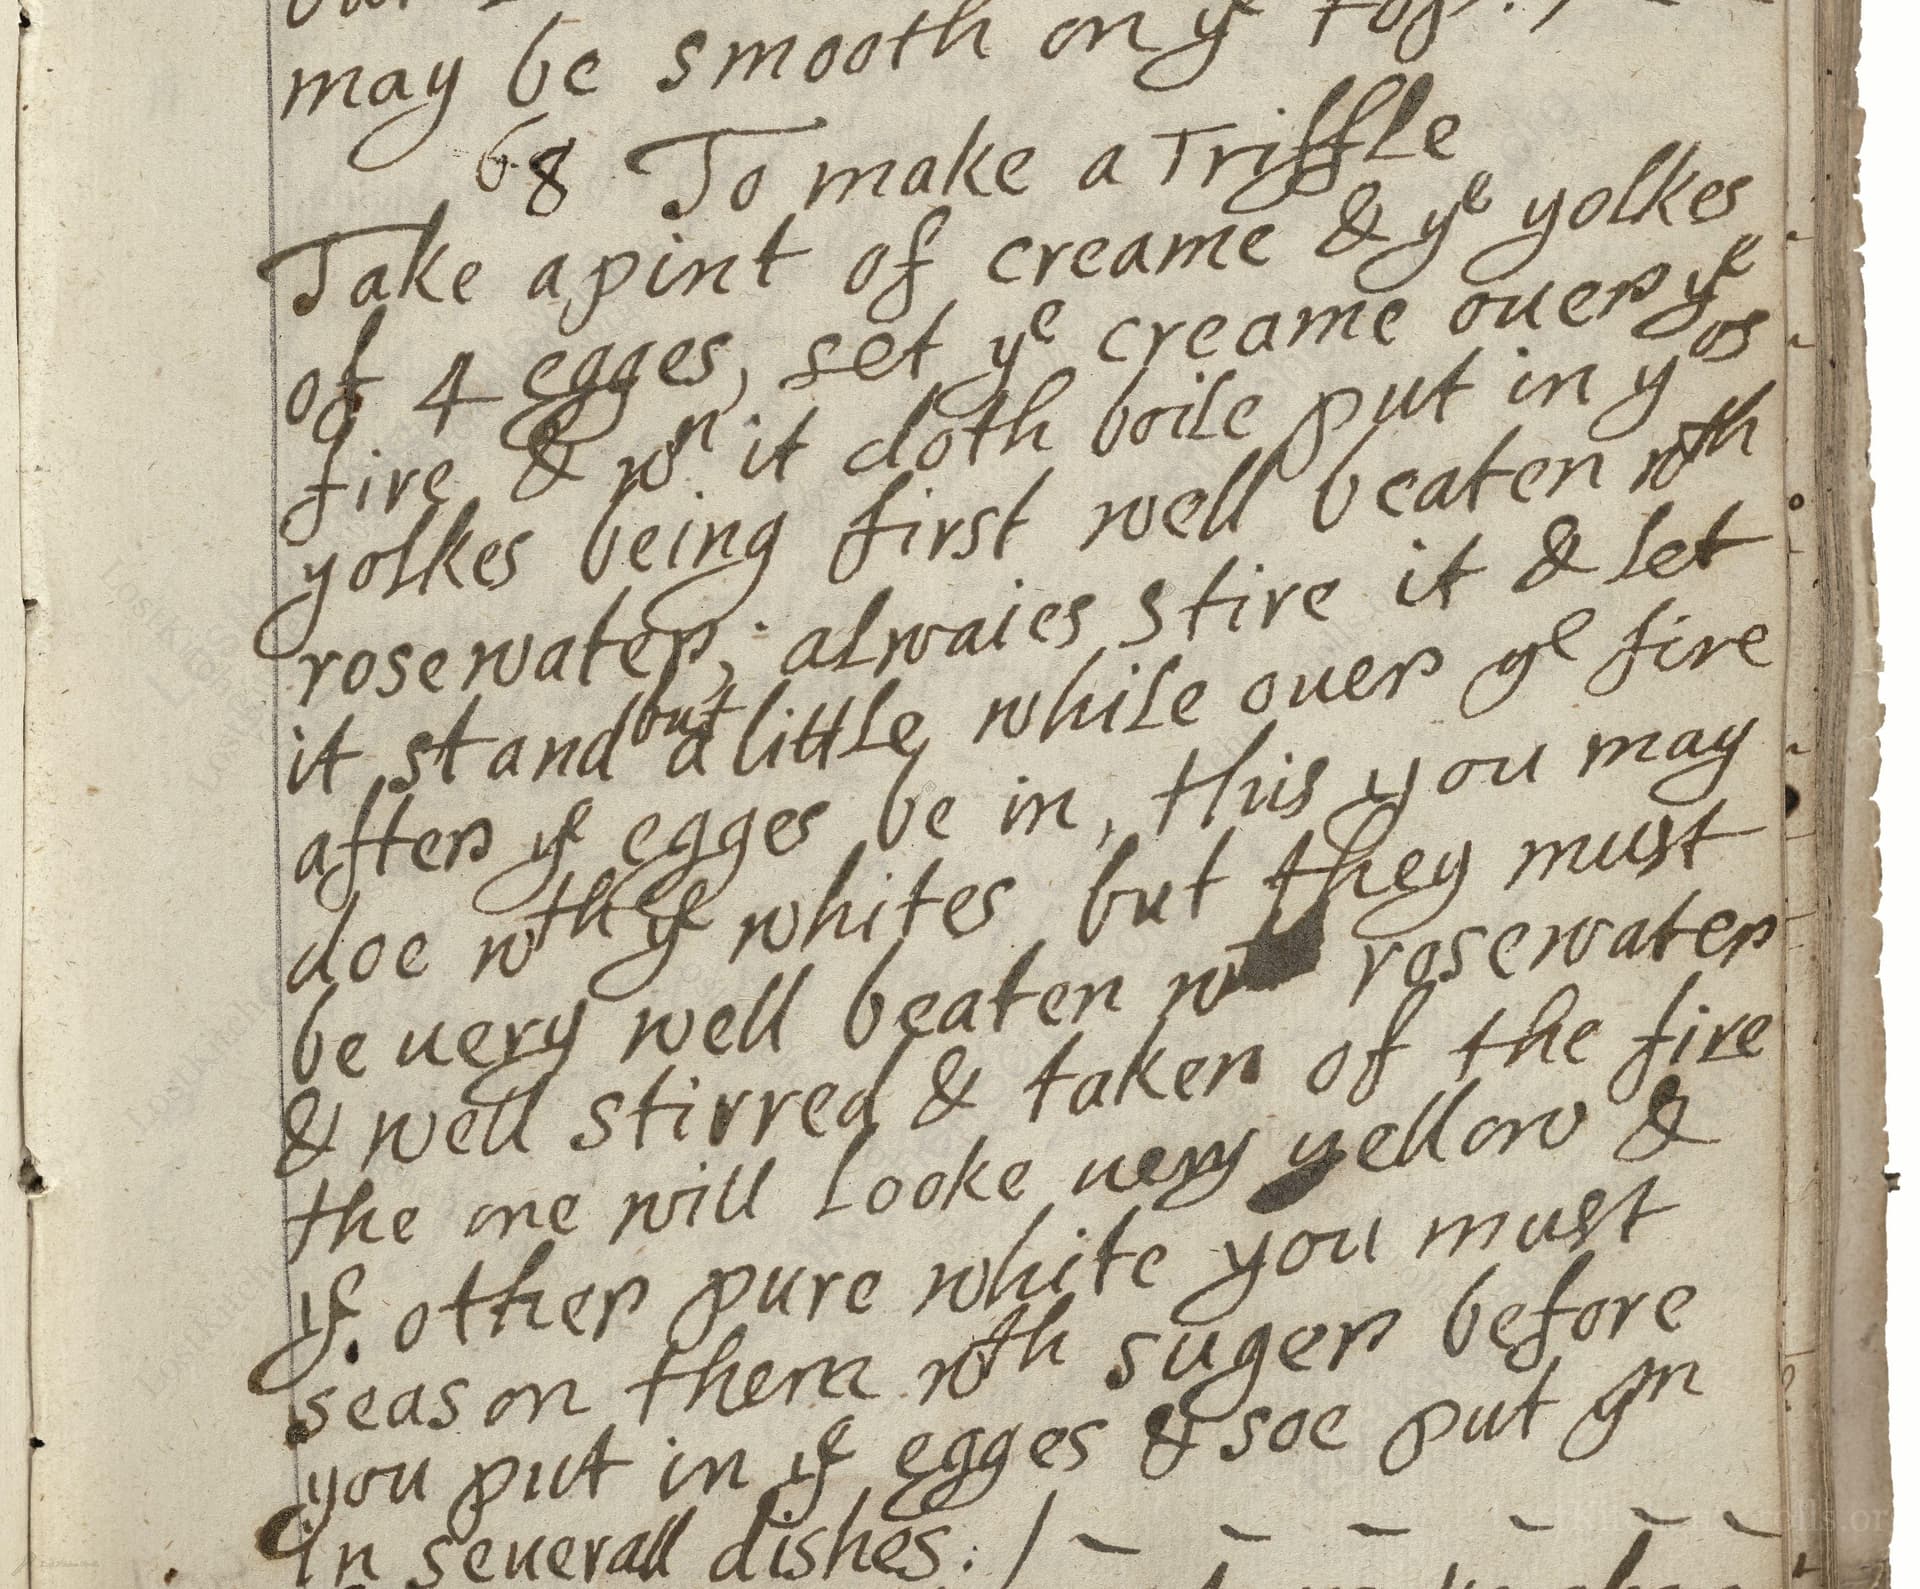 may be smooth on ye top. /
68 To make a Triffle
Take a pint of creame & ye yolkes
of 4 egges, set ye creame ouer ye
fire & wn it doth boile put in yor
yolkes being first well beaten wth
rosewater; alwaies stire it & let
it stand but a little while ouer ye fire
after ye egges be in, this you may
doe wth ye whites but they must
be uery well beaten rosewater
& well stirred & taken of the fire
the one will Looke uery yellow &
ye other pure white you must
season them wth suger before
you put in ye egges & soe put ym
in seuerall dishes. / ~ ~ ~ ~ ~ ~